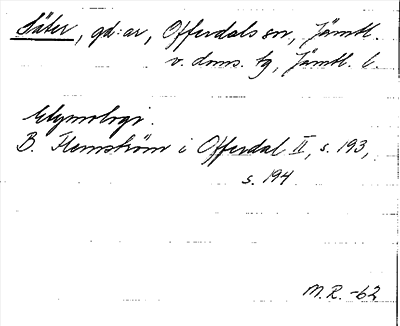 Säter, gd:ar, Offerdals sn, Jämtl.
v. doms. tg, Jämtl. l.
Etymologi.
B. Flemström i Offerdal II, s. 193,
s. 194
M.R. -62